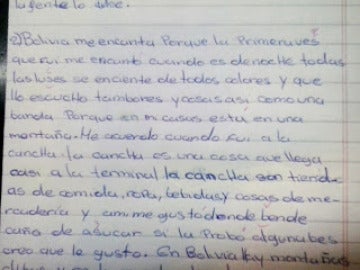 la gente lo sabe.
a) Bolivia me encanta Porque la Primera ves
que fui me encantó cuando es de noche todas
las luses se enciente de todos colores y que
llo escucho tambores y cosas así, como una
banda. Porque en mi casas está en una
montaña. He acuerdo cuando fui a la
cancha. la cancha es una cosa que llega
casi a la terminal la cancha son tiend-
as de comida, ropa, bebidas y cosas de me-
rcadería y ami me gusto donde bende
caña de asucar si la Probó alguna bes
creo que le gusto. En Bolivia hay montañas